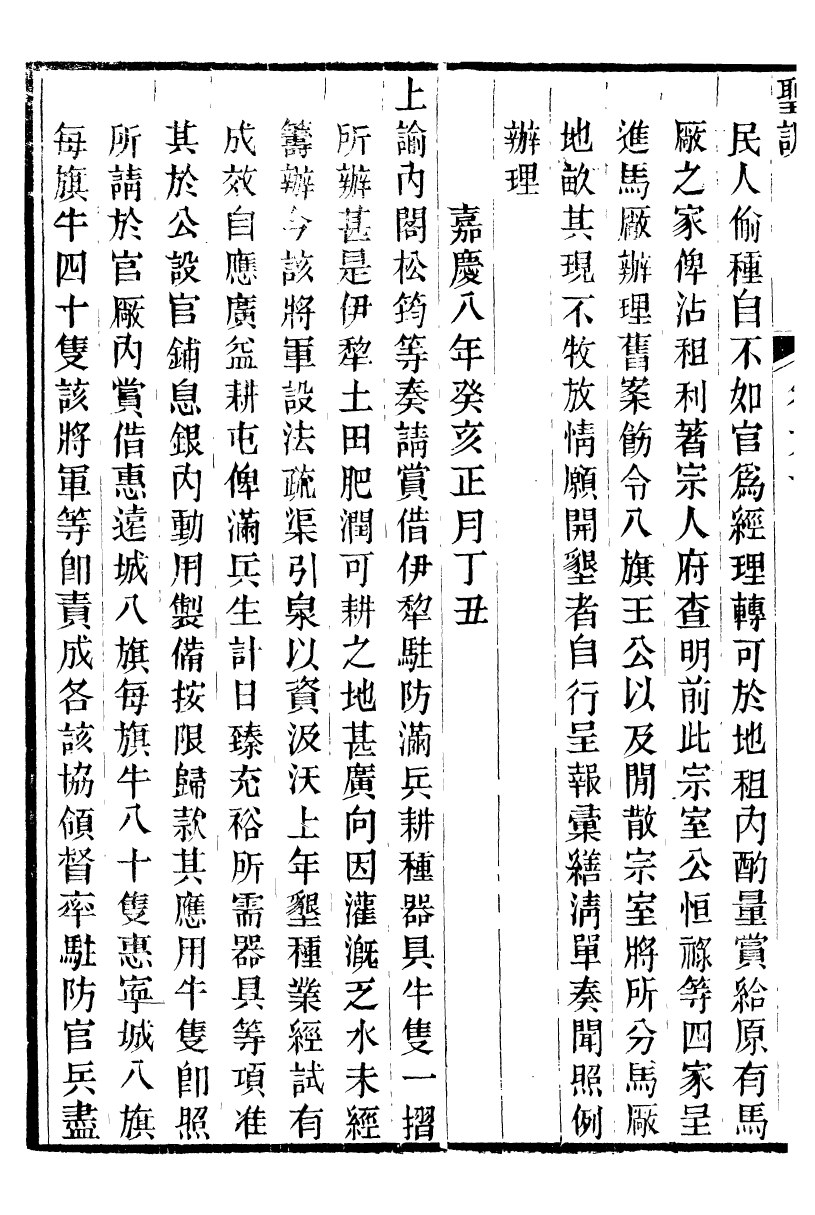 聖訓
民人偷種自不如官爲經理轉可於地租內酌量賞給原有馬
廠之家俾沾租利著宗人府查明前此宗室公恒祿等四家呈
進馬廠辦理舊案飭令八旗王公以及閒散宗室將所分馬廠
地畝其現不牧放情願開墾者自行呈報彙繕清單奏聞照例
辦理
嘉慶八年癸亥正月丁丑
上諭內閣松筠等奏請賞借伊犂駐防滿兵耕種器具牛隻一摺
所辦甚是伊犂土田肥潤可耕之地甚廣向因灌漑乏水未經
籌辦今該將軍設法疏渠引泉以資汲沃上年墾種業經試有
成效自應廣益耕屯俾滿兵生計日臻充裕所需器具等項准
其於公設官鋪息銀內動用製備按限歸款其應用牛隻卽照
所請於官廠內賞借惠遠城八旗每旗牛八十隻惠寧城八旗
每旗牛四十隻該將軍等卽責成各該協領督率駐防官兵盡